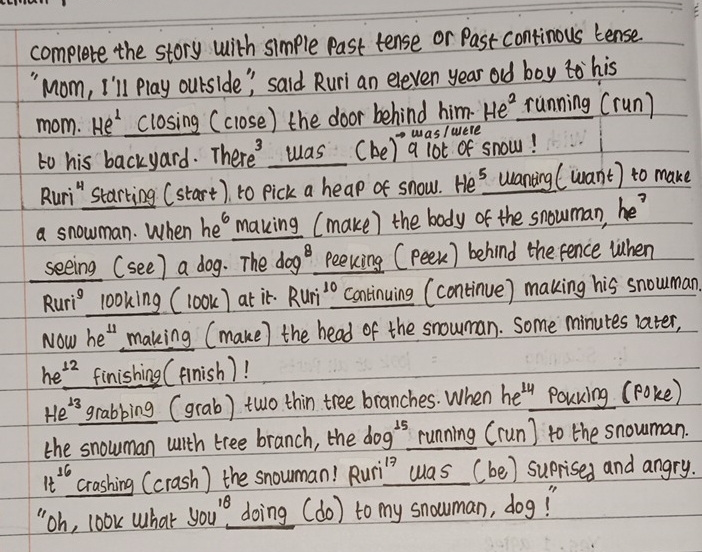 complete the story with simple past tense or Past continous tense.
"Mom, I'll Play outside", said Ruri an eleven year old boy to his
mom. He¹ closing (close) the door behind him. He² running (run)
→ was/were
to his backyard. There³ was (be) a lot of snow!
Ruri⁴ starting (start) to pick a heap of snow. He⁵ wanting (want) to make
a snowman. When he⁶ making (make) the body of the snowman, he⁷
seeing (see) a dog. The dog⁸ peeking (peek) behind the fence when
Ruri⁹ looking (look) at it. Ruri¹⁰ continuing (continue) making his snowman.
Now he¹¹ making (make) the head of the snowman. Some minutes later,
he¹² finishing (finish)!
He¹³ grabbing (grab) two thin tree branches. When he¹⁴ pokking (poke)
the snowman with tree branch, the dog¹⁵ running (run) to the snowman.
It¹⁶ crashing (crash) the snowman! Ruri¹⁷ was (be) suprised and angry.
"Oh, look what you¹⁸ doing (do) to my snowman, dog!"